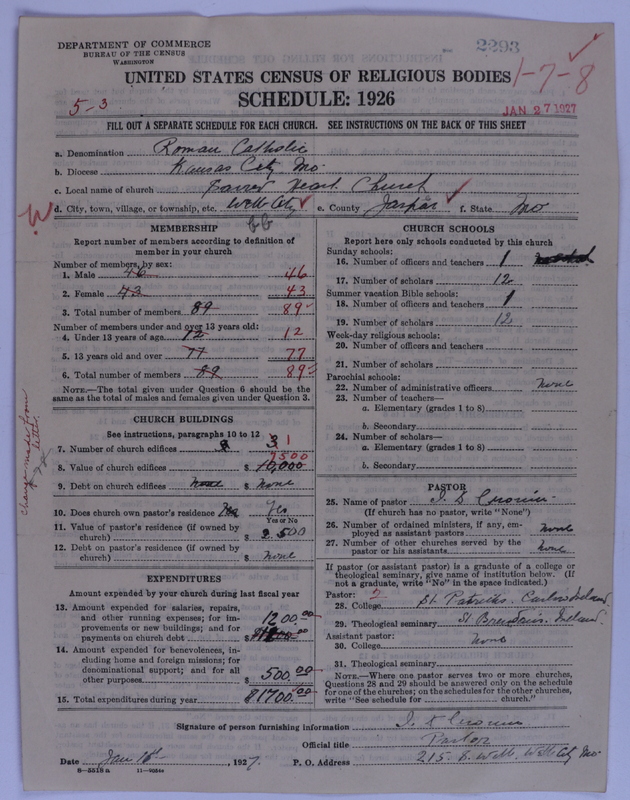 DEPARTMENT OF COMMERCE
BUREAU OF THE CENSUS
WASHINGTON
2293
UNITED STATES CENSUS OF RELIGIOUS BODIES
1-7-8
SCHEDULE: 1926
5-3
JAN 27 1927
FILL OUT A SEPARATE SCHEDULE FOR EACH CHURCH. SEE INSTRUCTIONS ON THE BACK OF THIS SHEET
a. Denomination Roman Catholic
b. Diocese Kansas City Mo.
c. Local name of church Sacred Heart Church
d. City, town, village, or township, etc. Webb City e. County Jaspar f. State Mo
MEMBERSHIP
Report number of members according to definition of member in your church
Number of members, by sex:
1. Male 46 46
2. Female 43 43
3. Total number of members 89 89
Number of members under and over 13 years old:
4. Under 13 years of age 12 12
5. 13 years old and over 77 77
6. Total number of members 89 89
NOTE.—The total given under Question 6 should be the same as the total of males and females given under Question 3.
Change made from letter.
CHURCH BUILDINGS
See instructions, paragraphs 10 to 12
7. Number of church edifices 3 1
7500
8. Value of church edifices $ 10,000
9. Debt on church edifices None $ None
10. Does church own pastor's residence Yes
Yes or No
11. Value of pastor's residence (if owned by church) $ 2500
12. Debt on pastor's residence (if owned by church) $ none
EXPENDITURES
Amount expended by your church during last fiscal year
13. Amount expended for salaries, repairs, and other running expenses; for improvements or new buildings; and for payments on church debt $ 1200.00
14. Amount expended for benevolences, including home and foreign missions; for denominational support; and for all other purposes $ 500.00
15. Total expenditures during year $1700.00
CHURCH SCHOOLS
Report here only schools conducted by this church
Sunday schools:
16. Number of officers and teachers 1
17. Number of scholars 12
Summer vacation Bible schools:
18. Number of officers and teachers 1
19. Number of scholars 12
Week-day religious schools:
20. Number of officers and teachers
21. Number of scholars
Parochial schools:
22. Number of administrative officers none
23. Number of teachers—
a. Elementary (grades 1 to 8)
b. Secondary
24. Number of scholars—
a. Elementary (grades 1 to 8)
b. Secondary
PASTOR
25. Name of pastor J. D Cronin
(If church has no pastor, write "None")
26. Number of ordained ministers, if any, employed as assistant pastors none
27. Number of other churches served by the pastor or his assistants none
If pastor (or assistant pastor) is a graduate of a college or theological seminary, give name of institution below. (If not a graduate, write "No" in the space indicated.)
Pastor:
28. College St Patricks, Carlow Ireland
29. Theological seminary St Brendan's, Ireland
Assistant pastor:
30. College none
31. Theological seminary
NOTE.—Where one pastor serves two or more churches, Questions 28 and 29 should be answered only on the schedule for one of the churches; on the schedules for the other churches, write "See schedule for church."
Signature of person furnishing information J. D Cronin
Official title Pastor
Date Jan 16th, 1927. P. O. Address 215 Webb, Webb City Mo
8-5518a 11-9054a